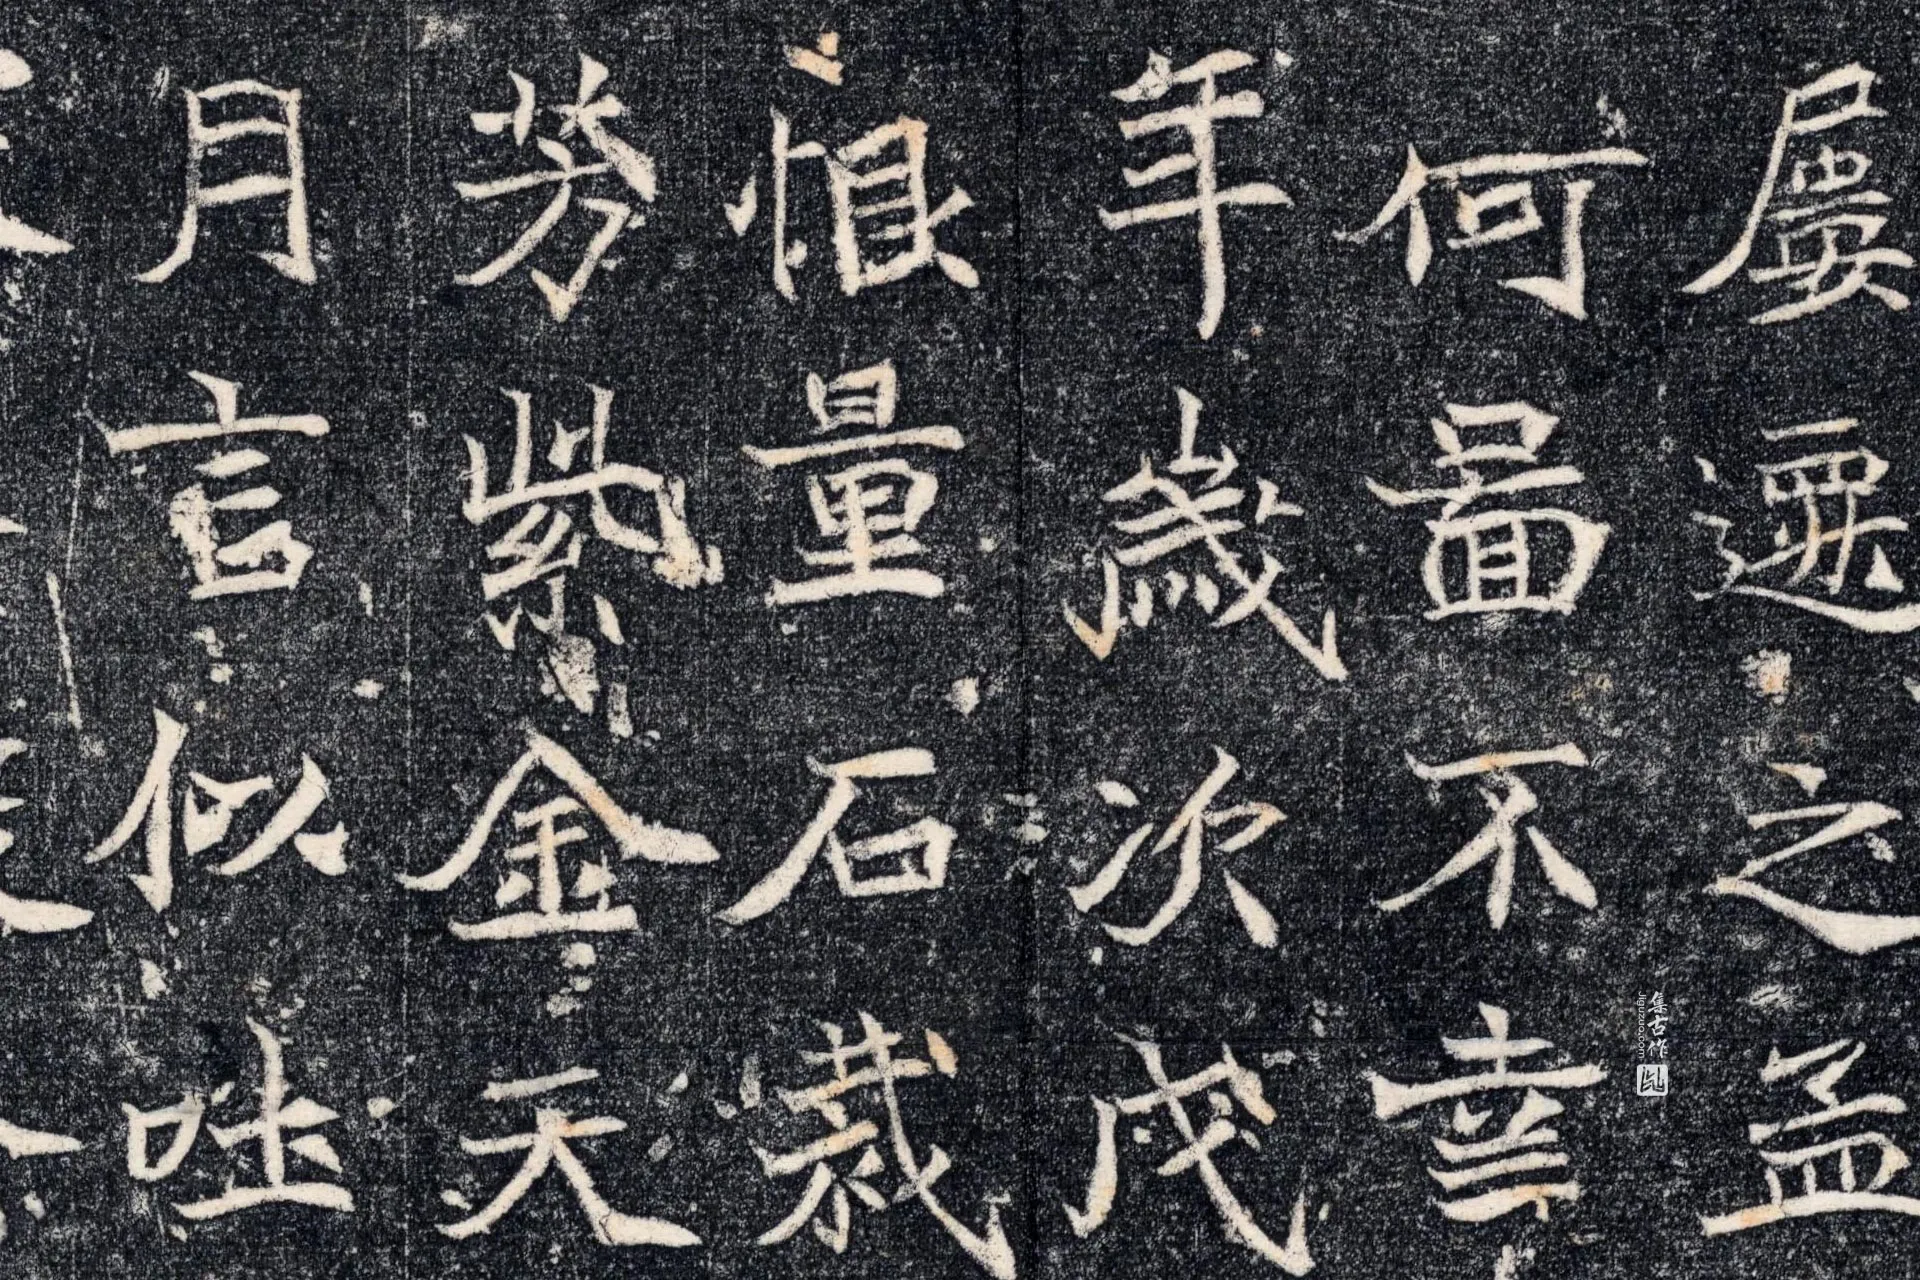 屢遷之
何圖不幸
年歲次戊
恨量石裁
芳紫金天
月言似
集古作
jiguzuo.com